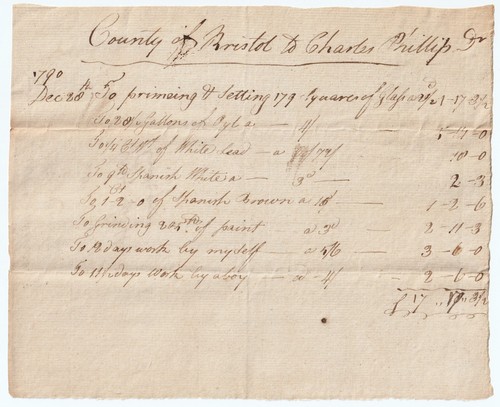 County of Bristol to Charles Phillips Dr
1790
Decr 28th To primeing & Setting 179 Squares of glass a 2½ 1-17-3½
To 28 Gallons of Oyl a - 4/ - 5-12-0
of White lead - a - 18-0
To 9 lb Spanish White a - 3d - 2-3
of Spanish Brown a - 1-2-6
To Grinding of paint a 3d - 2-11-3
To 12 days work by myself - a 5/6 - 3-6-0
To 11½ days work by a boy - a - 4/ - 2-6-0
£17 " 17 " 3½